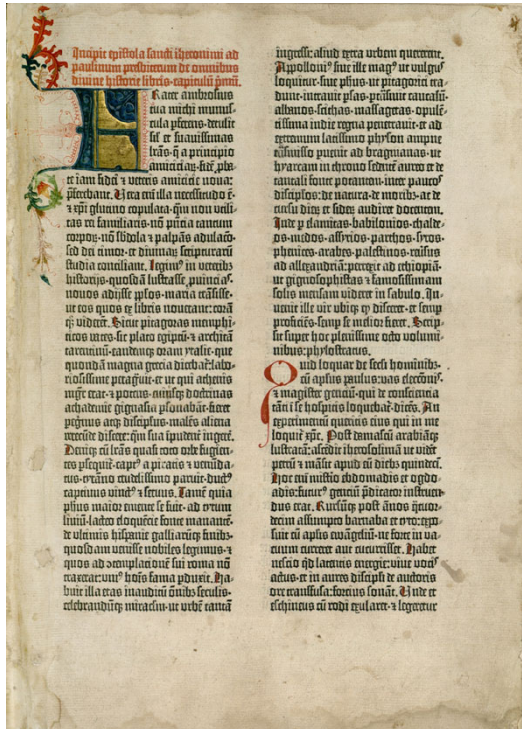 Incipit epistola sancti iheronimi ad
paulinum presbiterum de omnibus
divine historie libris. capitulū p̄mū.
Frater ambrosius
tua michi munus-
cula pferens. detulit
sil et suavissimas
lrās. q̄ a principio
amiciciar̄. fidē pba-
te iam fidei et veteris amicicie nova:
pferebant. Vera eni illa necessitudo ē.
et xpi glutino copulata. qm non vtili-
tas rei familiaris. nō pn̄tia tantum
corpor̄. nō sbdola et palpās adulacō.
sed dei timor. et divinar̄ scripturarū
studia conciliant. Legim⁹ in veteribz
historijs. quosdā lustrasse p̄uincias.
novos adijsse pplos. maria trāsisse.
ut eos quos ex libris noverant: corā
q̄ viderēt. Sicut pitagoras memphi-
ticos vates. sic plato egiptū. et architā
tarentinū. eandemq; oram ytalie. que
quondā magna grecia dicebat̄: labo-
riosissime peragvit. et ut qui athenis
mgr̄ erat. et potens. cuiusq; doctrinas
achademie gignasia psonabāt. fieret
pegrinus atq; discipulus. malēs aliena
verecūde discere: qm̄ sua īpudent̄ ingerē.
Deniq; cū lrās quasi toto orbe fugien-
tes psequit̄. capt⁹ a piratis et venūda-
tus. tyrāno crudelissimo paruit. duct⁹
captiuus vinct⁹ et seruus. Tamē quia
phūs maior emente se fuit. ad tytum
liuiū. lacteo eloquētie fonte manantē.
de vltimis hispanie galliarūq; finibz.
quosdam venisse nobiles legimus. et
quos ad ɔtemplacionē sui roma nō
traxerat: uni⁹ hoīs fama pduxit. Ha-
buit illa etas inauditū ōnibz seculis.
celebrandūq; miraclm. ut vrbē tantā
ingressi: aliud extra vrbem quererent.
Appolloni⁹ sive ille mag⁹ ut vulgus
loquitur. sive phus. ut pitagorici tra-
dunt. intravit psas. ptrāsivit caucasū.
albanos. scithas. massagetas. opulē-
tissima indie regna penetravit. et ad
extremum latissimo physon amne
trāsmisso puenit ad bragmanas. ut
hyarcam in throno sedētē aureo et de
tantali fonte potantem. inter paucos
discipulos. de natura. de moribz. ac de
cursu dierū et siderū audiret docentem.
Inde p elamitas. babilonios. chalde-
os. medos. assyrios. parthos. syros.
phenices. arabes. palestinos. reūsus
ad allexandriā: perrexit ad ethiopiā.
ut gignosophistas et famosissimam
solis mensam videret in sabulo. In-
uenit ille vir vbiq; qd disceret. et semp
proficiēs. semp se melior fieret. Scrip-
sit super hoc plenissime octo volumi-
nibus: phylostratus.
Quid loquar de seculi hominibz.
cū aplus paulus: vas electionis.
et magister gentiū. qui de consciencia
tanti ī se hospitis loquebat̄. dicēs. An
experimentū queritis eius qui in me
loquit̄ xpc. Post damascū arabiāq;
lustratā: ascēdit iherosolimā ut videret
petrū et māsit apud eū diebz quindeci.
Hoc enī misterio ebdomadis et ogdo-
adis: futur⁹ gentiū p̄dicator instruen-
dus erat. Rursūq; post ānos q̄tuor-
decim assumpto barnaba et tyto: expo-
suit cū aplis evangeliū. ne forte in va-
cuum curreret aut cucurrisset. Habet
nescio qd latentis energie: vive vocis
actus. et in aures discipli de auctoris
ore transfusa: forcius sonat. Vnde et
eschineus cū rodi exularet. et legeretur